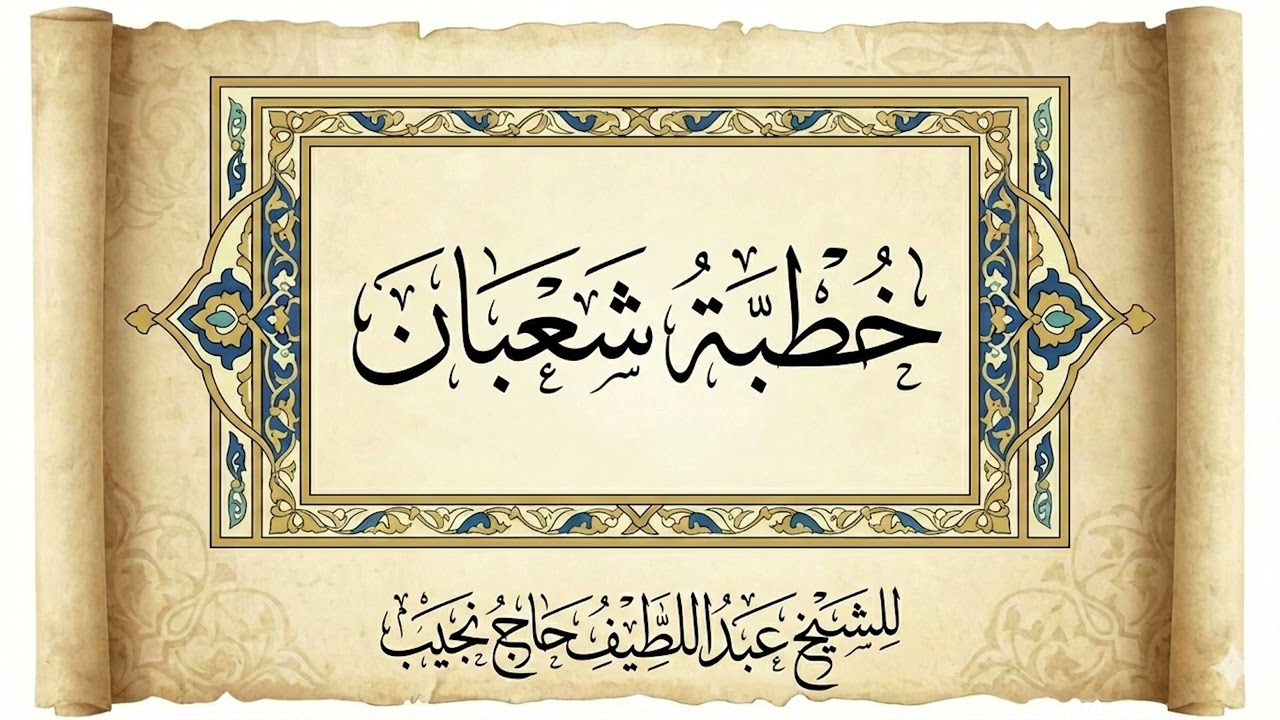 خُطْبَّةُ شَعْبَانَ
لِلشَيْخِ عَبْدُ اللَّطِيْفِ حَاجُ نَجِيَبْ